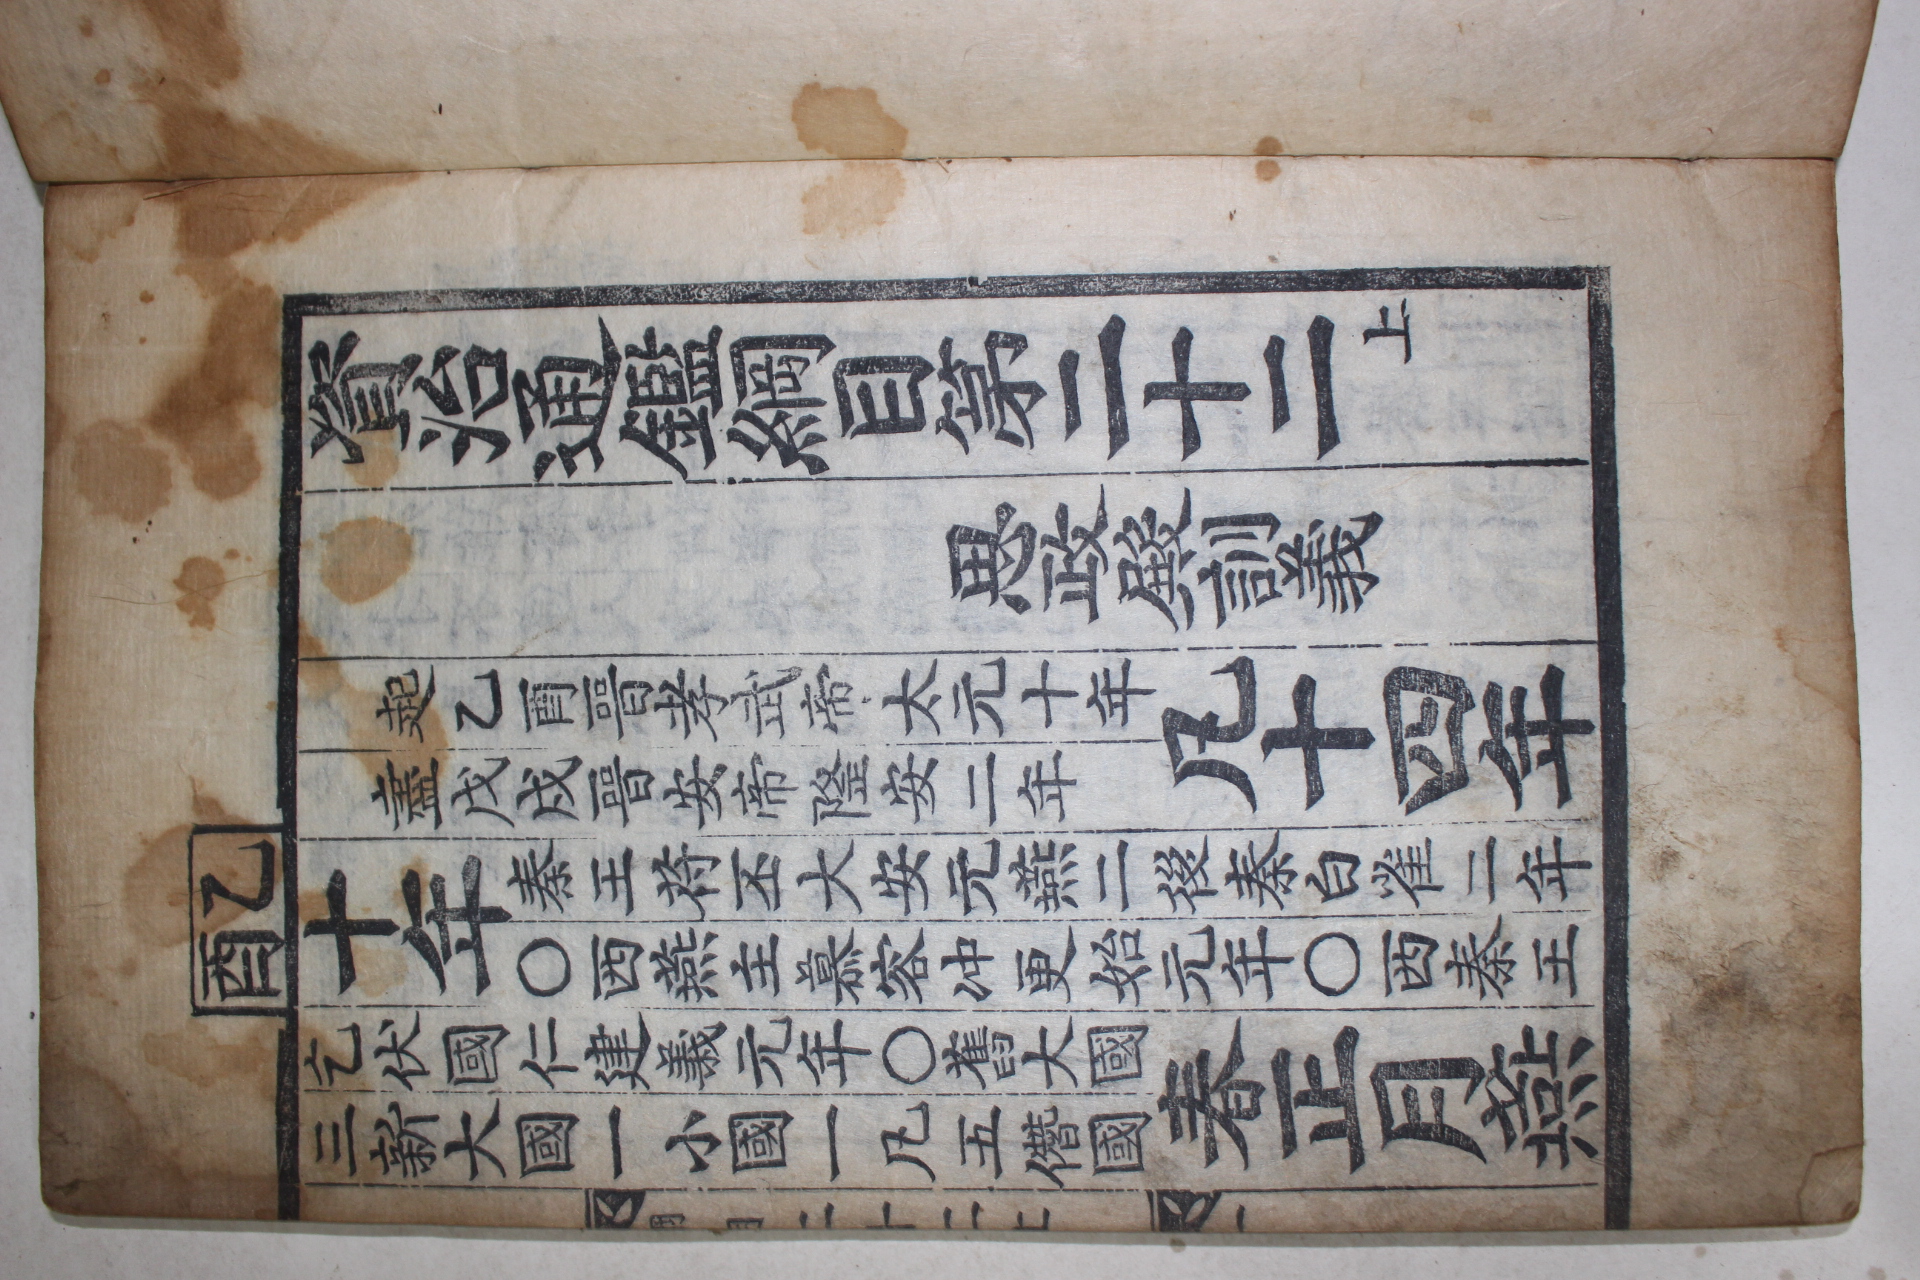 資治通鑑綱目第二十二上
思政殿訓義
起乙酉晉孝武帝太元十年
盡戊戌晉安帝隆安二年
凡十四年
乙酉
十年
秦王苻丕大安元燕二後秦白雀二年
○西燕主慕容冲更始元年○西秦王
乞伏國仁建義元年○舊大國
三新大國一小國一凡五僭國
春正月燕